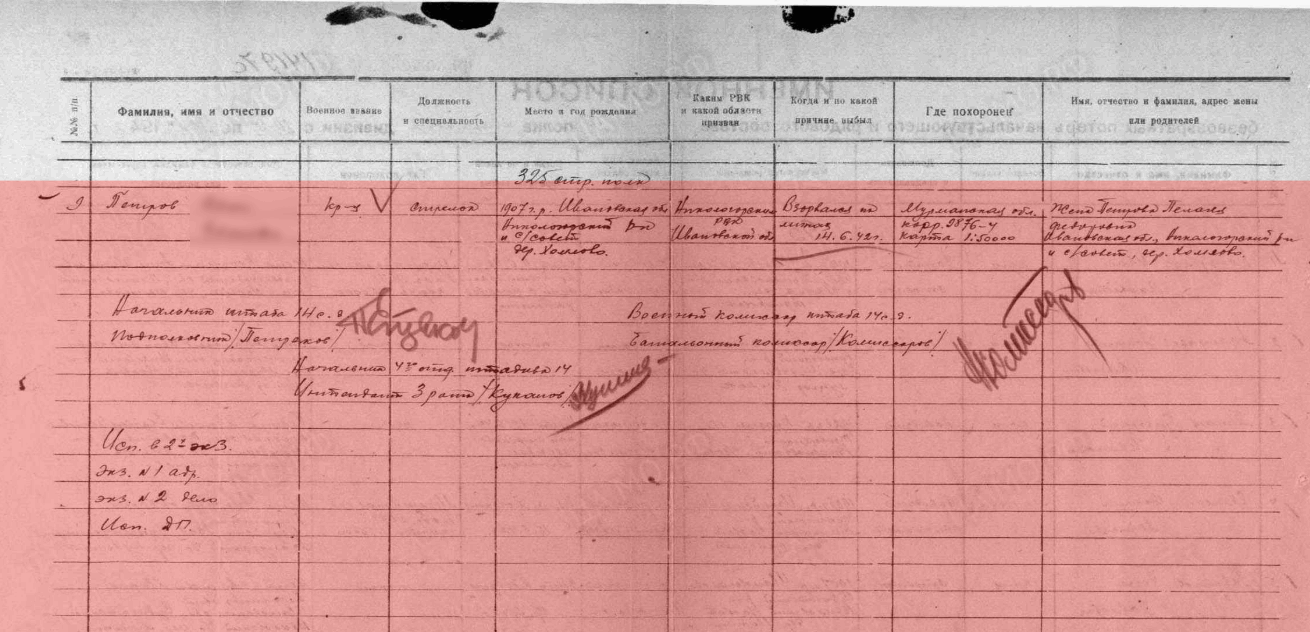 №№ п/п
Фамилия, имя и отчество
Военное звание
Должность
и специальность
Место и год рождения
Каким РВК
и какой области
призван
Когда и по какой
причине выбыл
Где похоронен
Имя, отчество и фамилия, адрес жены
или родителей
325 стр. полк
9
Петров
кр-ц
стрелок
1907 г.р. Ивановская обл
Никологорский р-н
с/совет
дер. Холмово.
Никологорским
РВК
Ивановской обл
Взорвался на
минах
14.6.42г.
Мурманская обл.
карта 1:50000
Жена Петрова Пелагея
Федоровна
Ивановская обл., Никологорский р-н
с/совет, дер. Холмово.
Начальник штаба 14 с.д.
Подполковник /Петцаков/
Военный комиссар штаба 14 с.д.
Батальонный комиссар /Комиссаров/
Начальник 4го отд. штадива 14
Интендант 3 ранга /Куканов/
Исп. в 2х экз.
экз. №1 адр.
экз. №2 дело
Исп. ДП.